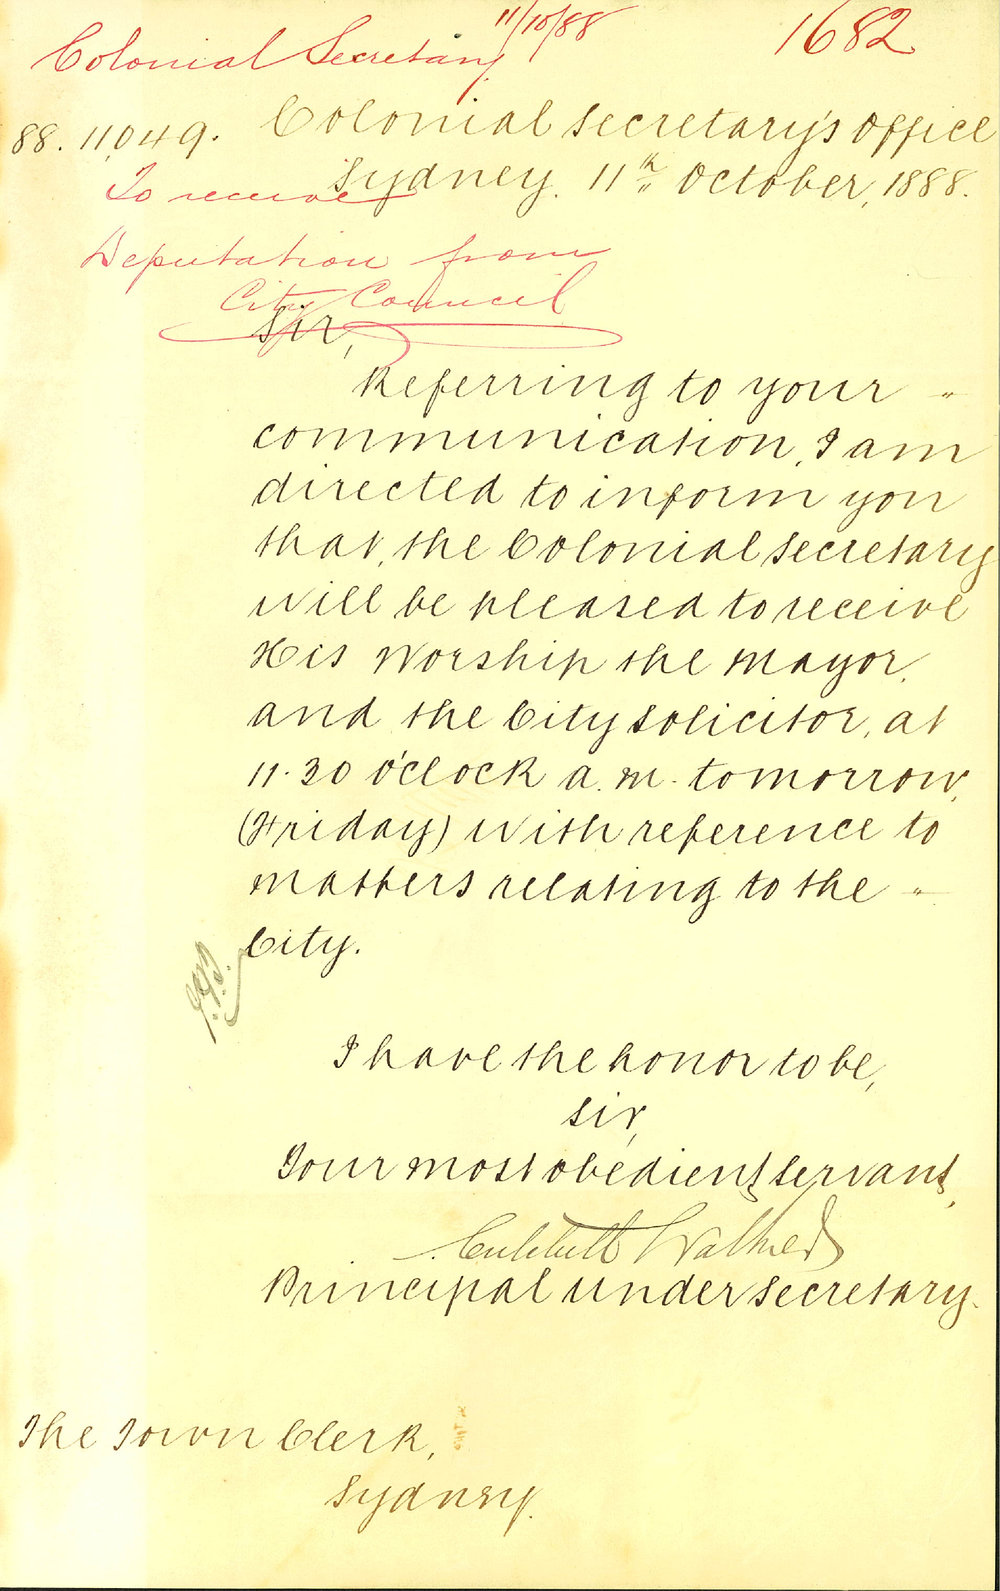 Colonial Secretary 11/10/88
1682
88. 11,049.
Colonial Secretary's Office
Sydney. 11th October, 1888.
To receive
Deputation from
City Council
Sir,
Referring to your "
communication, I am
directed to inform you
that, the Colonial Secretary
will be pleased to receive
His Worship the Mayor,
and the City Solicitor, at
11.30 o'clock a.m. tomorrow,
(Friday) with reference to
matters relating to the "
City.
I have the honor to be,
Sir,
Your most obedient servant,
Critchett Walker
Principal Under Secretary.
The Town Clerk,
Sydney.